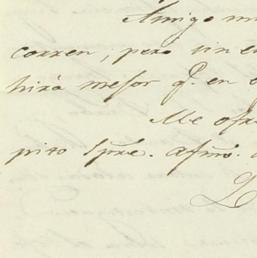 Amigo mi
corren, pero sin e
hirá mejor q.^e en
Me ofr
pito Spre. afmo.